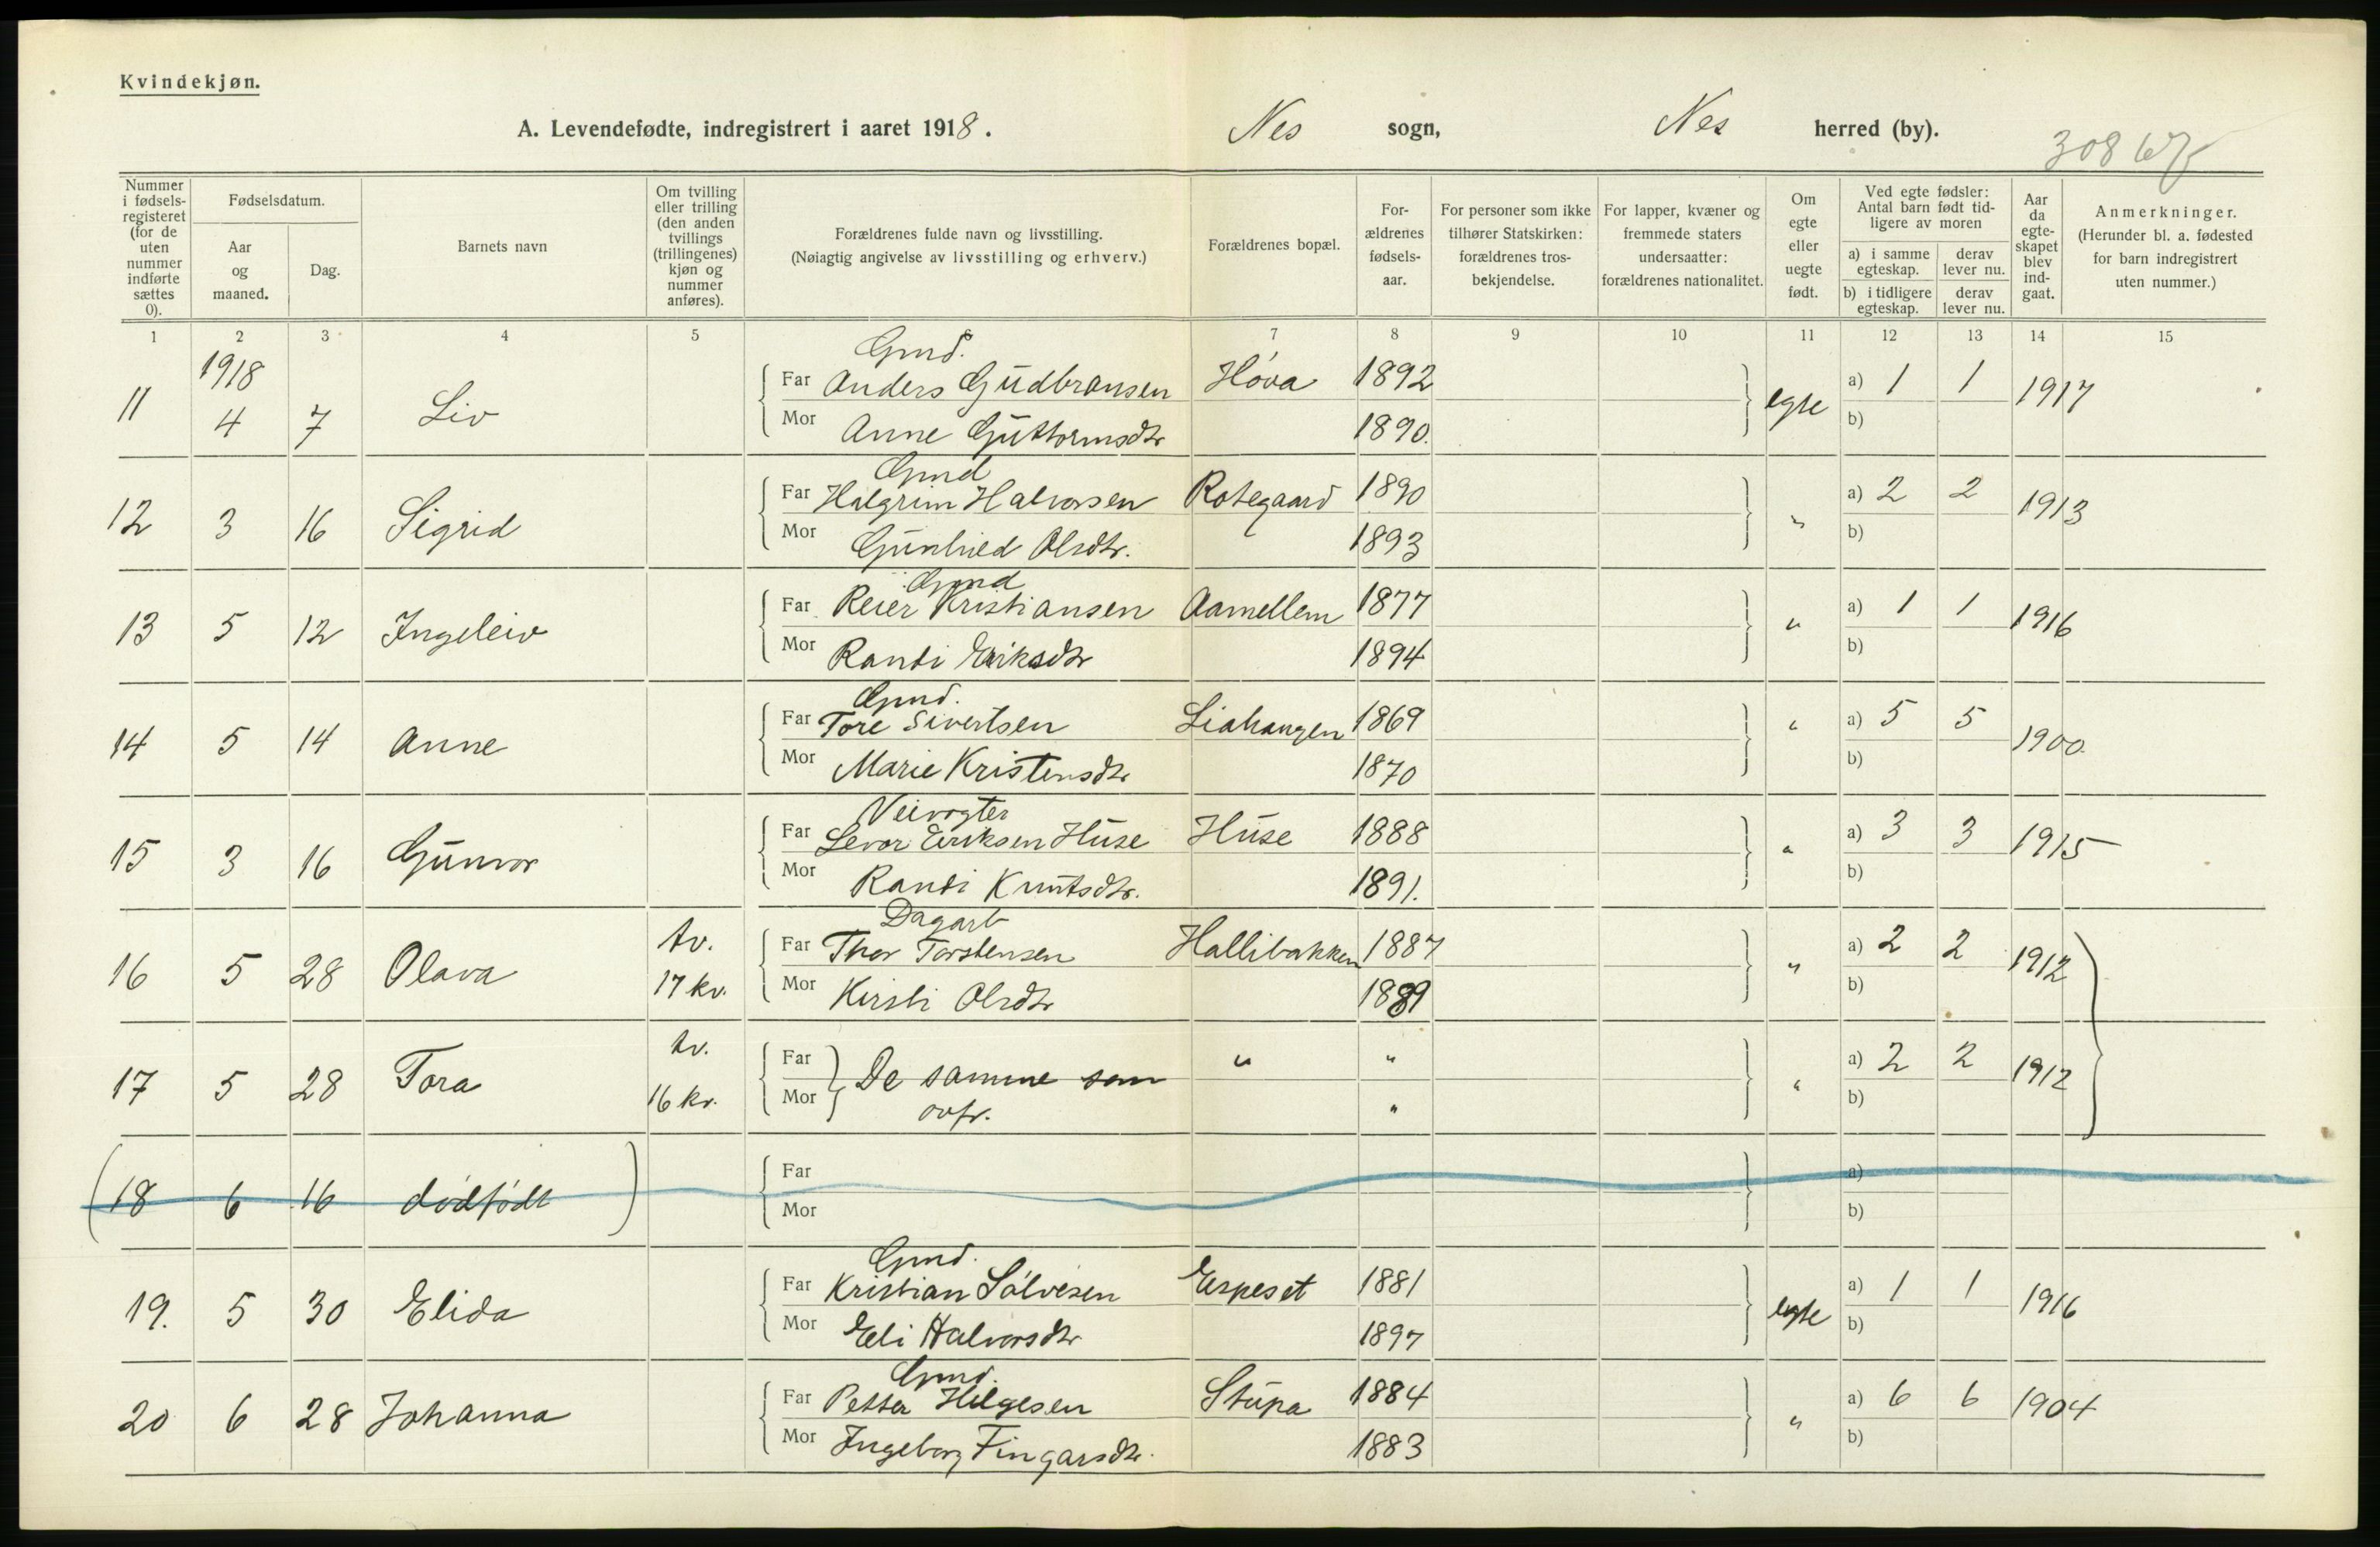 Kvindekjøn.
A. Levendefødte, indregistrert i aaret 1918. Nes sogn, Nes herred (by).
308
Nummer i fødsels-registeret (for de uten nummer indførte sættes 0).
Fødselsdatum.
Aar og maaned.
Dag.
Barnets navn
Om tvilling eller trilling (den anden tvillings (trillingenes) kjøn og nummer anføres).
Forældrenes fulde navn og livsstilling.
(Nøiagtig angivelse av livsstilling og erhverv.)
Forældrenes bopæl.
For-ældrenes fødsels-aar.
For personer som ikke tilhører Statskirken: forældrenes tros-bekjendelse.
For lapper, kvæner og fremmede staters undersaatter: forældrenes nationalitet.
Om egte eller uegte født.
Ved egte fødsler: Antal barn født tid-ligere av moren
a) i samme egteskap.
derav lever nu.
b) i tidligere egteskap.
derav lever nu.
Aar da egte-skapet blev ind-gaat.
Anmerkninger.
(Herunder bl. a. fødested for barn indregistrert uten nummer.)
1 2 3 4 5 6 7 8 9 10 11 12 13 14 15
1918 Gmd.
11 4 7 Liv Far Anders Gudbransen Hóva 1892 egte a) 1 1 1917
Mor Anne Guttormsdtr 1890. b)
Gmd
12 3 16 Sigrid Far Halgrim Halvorsen Rotegaard 1890 " a) 2 2 1913
Mor Gunhild Olsdtr. 1893 b)
Gmd
13 5 12 Ingeleiv Far Reier Kristiansen Aamellem 1877 " a) 1 1 1916
Mor Randi Eriksdtr 1894 b)
Gmd.
14 5 14 Anne Far Tore Sivertsen Liahaugen 1869 " a) 5 5 1900.
Mor Marie Kristensdtr 1870 b)
Veivogter
15 3 16 Gunvor Far Levor Eriksen Huse Huse 1888 " a) 3 3 1915
Mor Randi Knutsdtr. 1891. b)
Dagarb
16 5 28 Olava tv. Far Thor Torstensen Hallibakken 1887 " a) 2 2 1912
17 kv. Mor Kirsti Olsdtr 1889 b)
17 5 28 Tora tv. Far De samme som " " " a) 2 2 1912
16 kv. Mor ovfr. " b)
(18 6 16 dødfødt) Far a)
Mor b)
Gmd.
19. 5 30 Elida Far Kristian Sólvesen Espeset 1881 egte a) 1 1 1916
Mor Eli Halvorsdtr 1897 b)
Gmd.
20 6 28 Johanna Far Petter Helgesen Stupa 1884 " a) 6 6 1904
Mor Ingeborg Fingarsdtr. 1883 b)